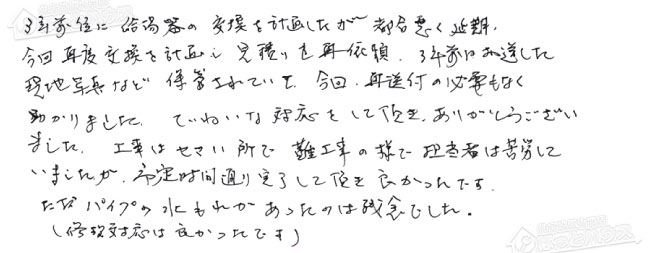 3年前位に給湯器の交換を計画したが都合悪く延期.
今回再度交換を計画し見積りを再依頼.3年前にお送した
現地写真など保管されていて、今回、再送付の必要もなく
助かりました.ていねいな対応をして頂き、ありがとうござい
ました.工事はセマい所で難工事の様で担当者は苦労して
いましたが、予定時間通り完了して頂き良かったです.
ただパイプの水もれがあったのは残念でした.
(修放対応は良かったです)